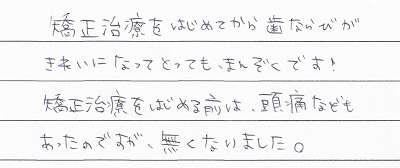 矯正治療をはじめてから歯ならびが
きれいになってとっても、まんぞくです!
矯正治療をはじめる前は、頭痛なども
あったのですが、無くないました。